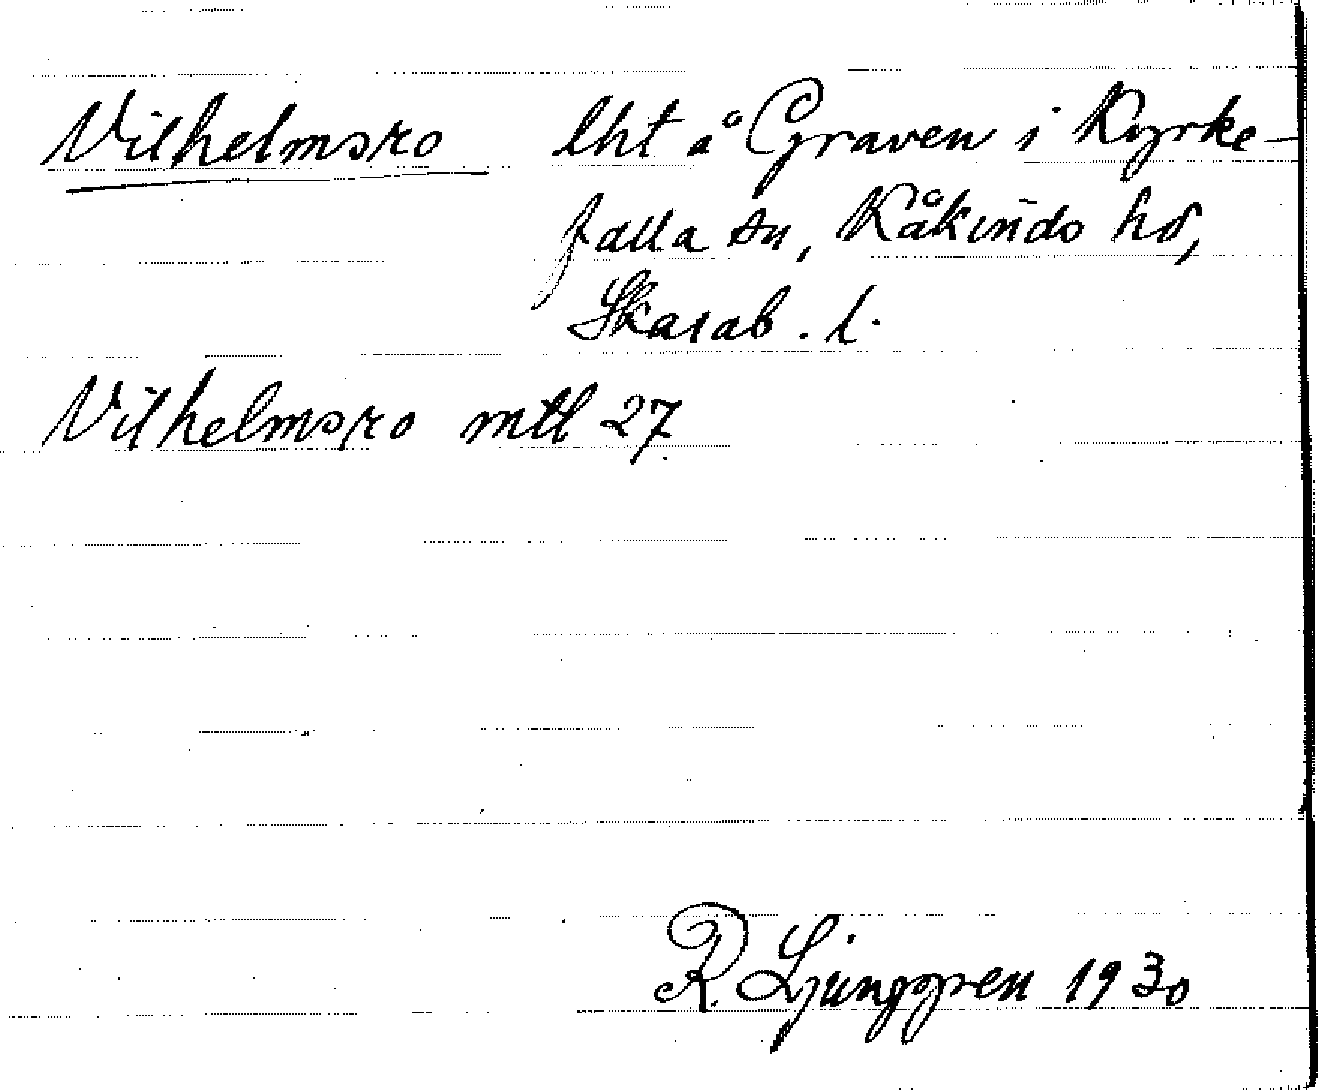 Vilhelmsro lht å Graven i Kyrke-
falla sn, Kåkinds hd,
Skarab. l.
Vilhelmsro mtl 27
R. Ljunggren 1930